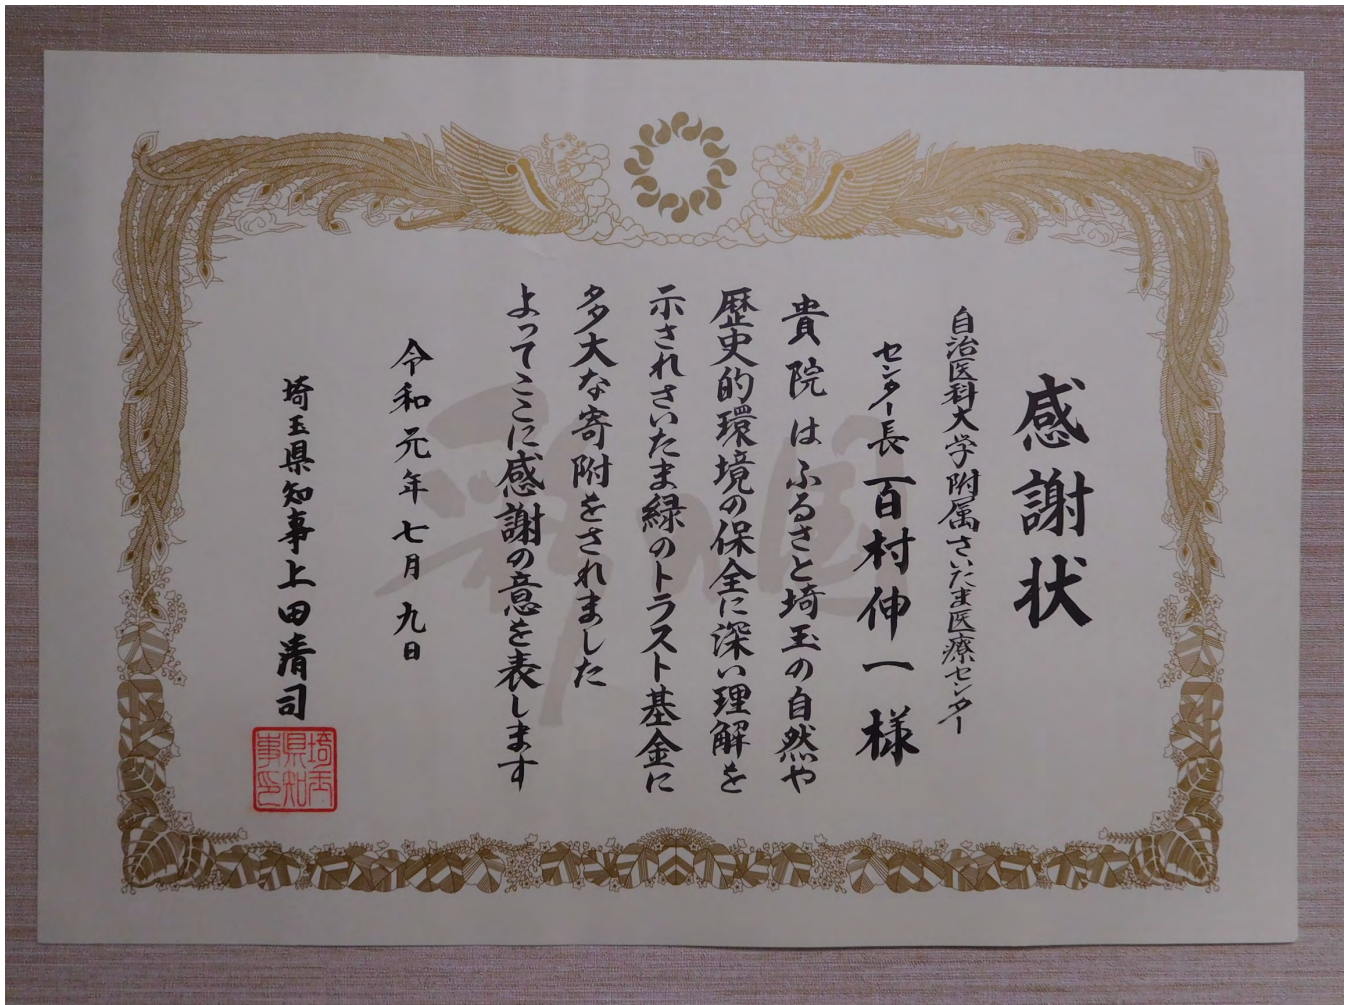 感謝状
自治医科大学附属さいたま医療センター
センター長 百村伸一様
貴院はふるさと埼玉の自然や
歴史的環境の保全に深い理解を
示されさいたま緑のトラスト基金に
多大な寄附をされました
よってここに感謝の意を表します
令和元年七月九日
埼玉県知事上田清司
埼玉
県知
事印
彩の国